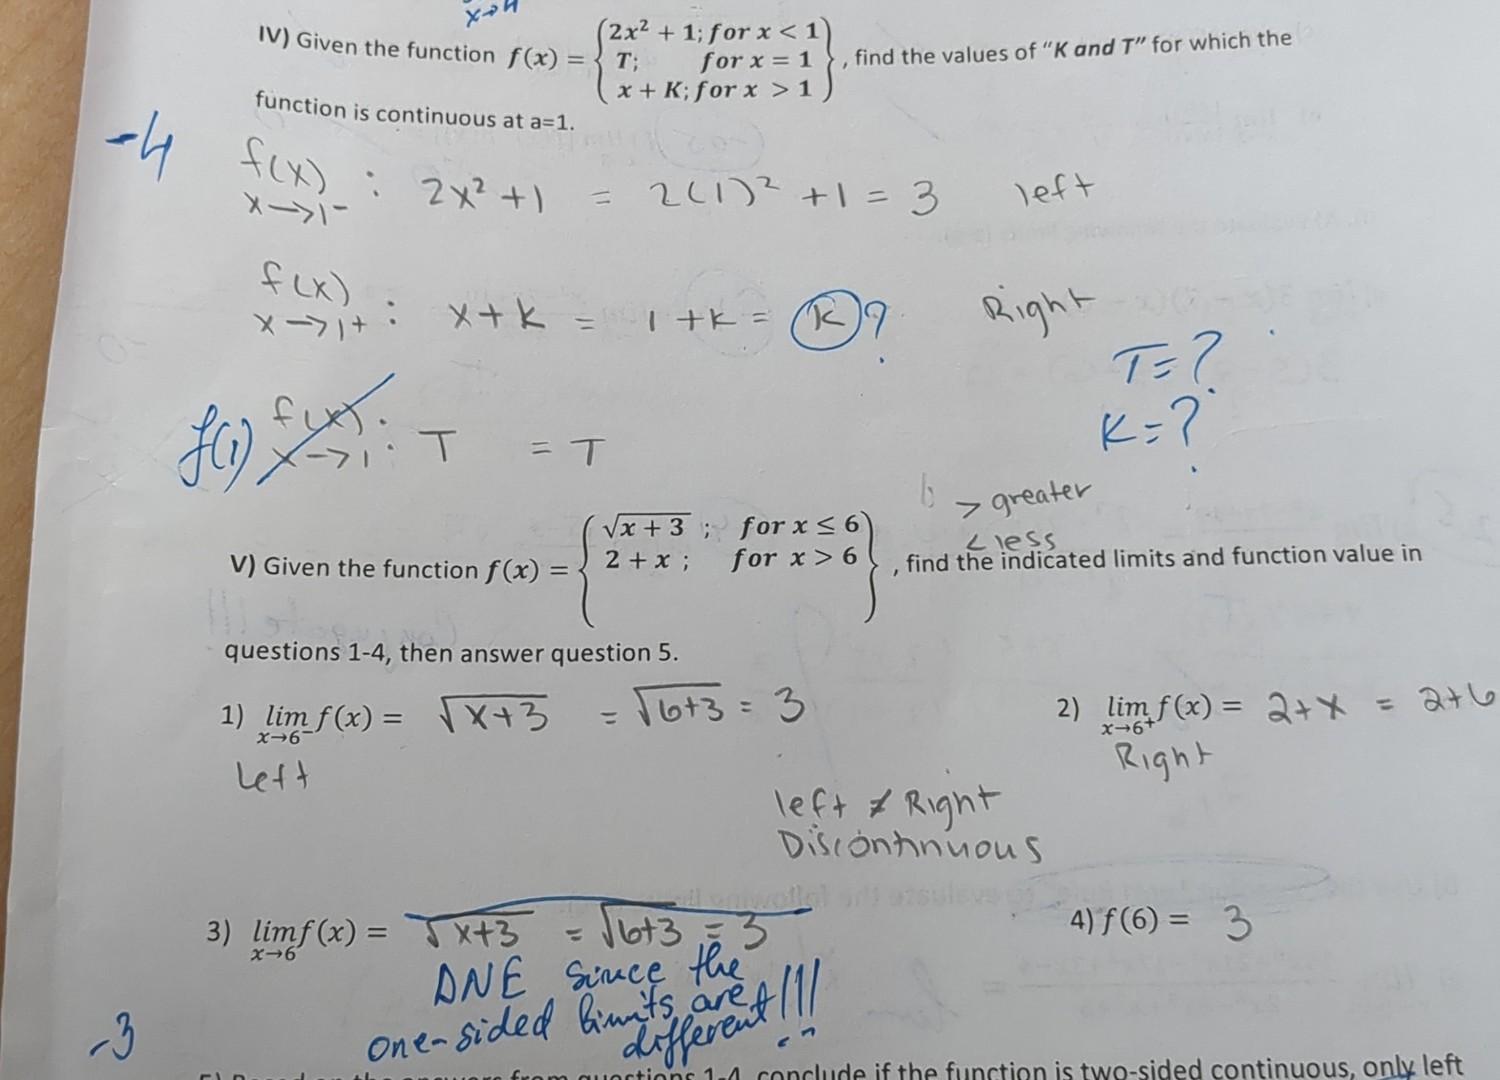 x→4
IV) Given the function f(x) = { 2x² + 1; for x < 1
T; for x = 1
x + K; for x > 1 } , find the values of "K and T" for which the
function is continuous at a=1.
-4
f(x) x→1- : 2x²+1 = 2(1)² +1 = 3 left
f(x) x→1+ : x+k = 1+k = k ? Right
T=?
K=?
f(1) f(x) x→1 : T = T
> greater
< less
V) Given the function f(x) = { √x + 3 ; for x ≤ 6
2 + x ; for x > 6 } , find the indicated limits and function value in
questions 1-4, then answer question 5.
1) lim x→6⁻ f(x) = √x+3 = √6+3 = 3
Left
2) lim x→6⁺ f(x) = 2+x = 2+6
Right
left ≠ Right
Discontinuous
3) lim x→6 f(x) = √x+3 = √6+3 = 3
DNE since the
one-sided limits are
different!!!
4) f(6) = 3
-3
from questions 1-4, conclude if the function is two-sided continuous, only left